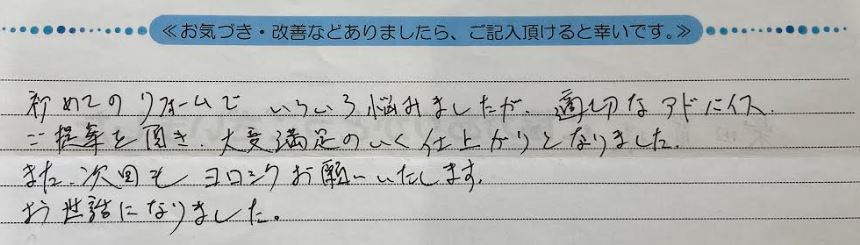 ≪お気づき・改善などありましたら、ご記入頂けると幸いです。≫
初めてのリフォームで いろいろ悩みましたが、適切なアドバイス、
ご提案を頂き、大変満足のいく仕上がりとなりました。
また、次回も ヨロシクお願いいたします。
お世話になりました。